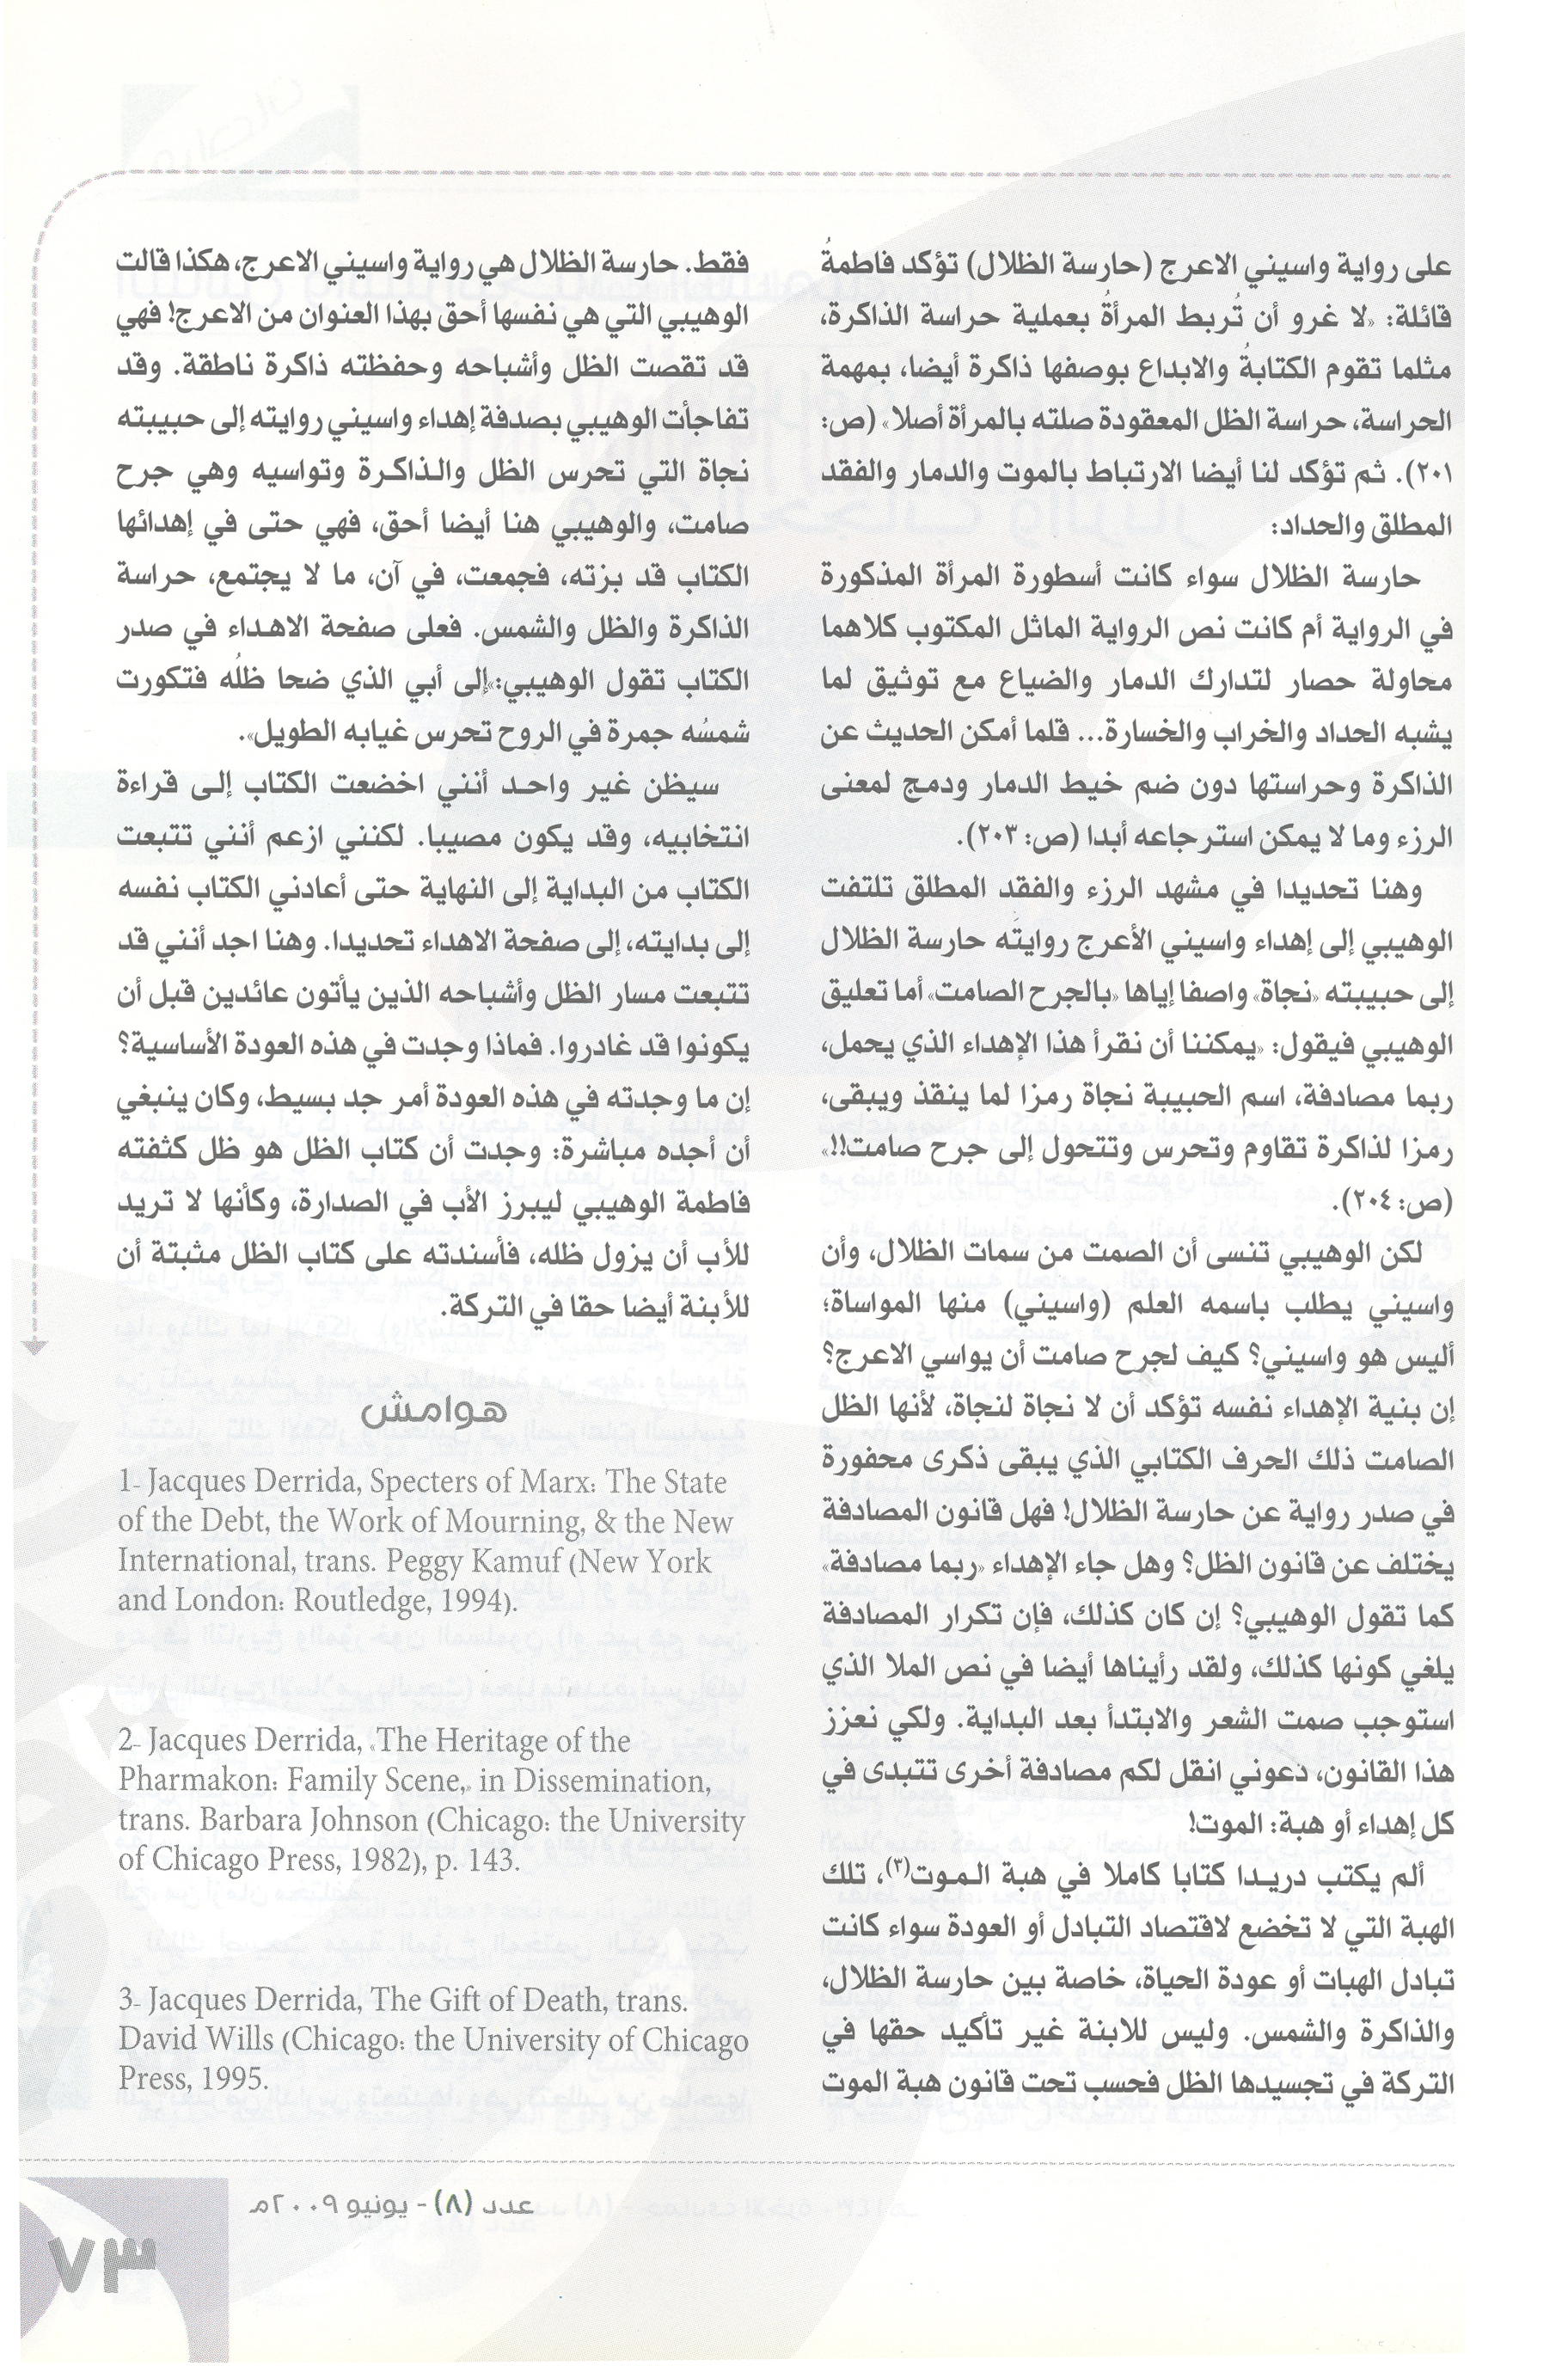 على رواية واسيني الاعرج (حارسة الظلال) تؤكد فاطمةُ
قائلة: «لا غرو أن تُربط المرأةُ بعملية حراسة الذاكرة،
مثلما تقوم الكتابةُ والابداع بوصفها ذاكرة أيضا، بمهمة
الحراسة، حراسة الظل المعقودة صلته بالمرأة أصلا» (ص:
٢٠١). ثم تؤكد لنا أيضا الارتباط بالموت والدمار والفقد
المطلق والحداد:
حارسة الظلال سواء كانت أسطورة المرأة المذكورة
في الرواية أم كانت نص الرواية الماثل المكتوب كلاهما
محاولة حصار لتدارك الدمار والضياع مع توثيق لما
يشبه الحداد والخراب والخسارة... قلما أمكن الحديث عن
الذاكرة وحراستها دون ضم خيط الدمار ودمج لمعنى
الرزء وما لا يمكن استرجاعه أبدا (ص: ٢٠٣).
وهنا تحديدا في مشهد الرزء والفقد المطلق تلتفت
الوهيبي إلى إهداء واسيني الأعرج روايتَه حارسة الظلال
إلى حبيبته «نجاة» واصفا إياها «بالجرح الصامت» أما تعليق
الوهيبي فيقول: «يمكننا أن نقرأ هذا الإهداء الذي يحمل،
ربما مصادفة، اسم الحبيبة نجاة رمزا لما ينقذ ويبقى،
رمزا لذاكرة تقاوم وتحرس وتتحول إلى جرح صامت!!»
(ص: ٢٠٤).
لكن الوهيبي تنسى أن الصمت من سمات الظلال، وأن
واسيني يطلب باسمه العلم (واسيني) منها المواساة؛
أليس هو واسيني؟ كيف لجرح صامت أن يواسي الاعرج؟
إن بنية الإهداء نفسه تؤكد أن لا نجاة لنجاة، لأنها الظل
الصامت ذلك الحرف الكتابي الذي يبقى ذكرى محفورة
في صدر رواية عن حارسة الظلال! فهل قانون المصادفة
يختلف عن قانون الظل؟ وهل جاء الإهداء «ربما مصادفة»
كما تقول الوهيبي؟ إن كان كذلك، فإن تكرار المصادفة
يلغي كونها كذلك، ولقد رأيناها أيضا في نص الملا الذي
استوجب صمت الشعر والابتدأ بعد البداية. ولكي نعزز
هذا القانون، دعوني انقل لكم مصادفة أخرى تتبدى في
كل إهداء أو هبة: الموت!
ألم يكتب دريدا كتابا كاملا في هبة الموت(٣)، تلك
الهبة التي لا تخضع لاقتصاد التبادل أو العودة سواء كانت
تبادل الهبات أو عودة الحياة، خاصة بين حارسة الظلال،
والذاكرة والشمس. وليس للابنة غير تأكيد حقها في
التركة في تجسيدها الظل فحسب تحت قانون هبة الموت
فقط. حارسة الظلال هي رواية واسيني الاعرج، هكذا قالت
الوهيبي التي هي نفسها أحق بهذا العنوان من الاعرج! فهي
قد تقصت الظل وأشباحه وحفظته ذاكرة ناطقة. وقد
تفاجأت الوهيبي بصدفة إهداء واسيني روايته إلى حبيبته
نجاة التي تحرس الظل والذاكرة وتواسيه وهي جرح
صامت، والوهيبي هنا أيضا أحق، فهي حتى في إهدائها
الكتاب قد بزته، فجمعت، في آن، ما لا يجتمع، حراسة
الذاكرة والظل والشمس. فعلى صفحة الاهداء في صدر
الكتاب تقول الوهيبي:«إلى أبي الذي ضحا ظلُه فتكورت
شمسُه جمرة في الروح تحرس غيابه الطويل».
سيظن غير واحد أنني اخضعت الكتاب إلى قراءة
انتخابيه، وقد يكون مصيبا. لكنني ازعم أنني تتبعت
الكتاب من البداية إلى النهاية حتى أعادني الكتاب نفسه
إلى بدايته، إلى صفحة الاهداء تحديدا. وهنا اجد أنني قد
تتبعت مسار الظل وأشباحه الذين يأتون عائدين قبل أن
يكونوا قد غادروا. فماذا وجدت في هذه العودة الأساسية؟
إن ما وجدته في هذه العودة أمر جد بسيط، وكان ينبغي
أن أجده مباشرة: وجدت أن كتاب الظل هو ظل كثفته
فاطمة الوهيبي ليبرز الأب في الصدارة، وكأنها لا تريد
للأب أن يزول ظله، فأسندته على كتاب الظل مثبتة أن
للأبنة أيضا حقا في التركة.
هوامش
1- Jacques Derrida, Specters of Marx: The State
of the Debt, the Work of Mourning, & the New
International, trans. Peggy Kamuf (New York
and London: Routledge, 1994).
2- Jacques Derrida, «The Heritage of the
Pharmakon: Family Scene,» in Dissemination,
trans. Barbara Johnson (Chicago: the University
of Chicago Press, 1982), p. 143.
3- Jacques Derrida, The Gift of Death, trans.
David Wills (Chicago: the University of Chicago
Press, 1995.
عدد (٨) - يونيو ٢٠٠٩م
٧٣